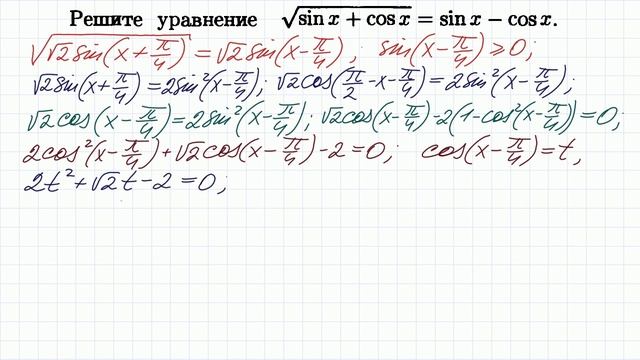 Решите уравнение √(sin x + cos x) = sin x − cos x.
√(√2 sin(x + π/4)) = √2 sin(x − π/4); sin(x − π/4) ⩾ 0;
√2 sin(x + π/4) = 2 sin²(x − π/4); √2 cos(π/2 − x − π/4) = 2 sin²(x − π/4);
√2 cos(x − π/4) = 2 sin²(x − π/4); √2 cos(x − π/4) − 2(1 − cos²(x − π/4)) = 0;
2cos²(x − π/4) + √2 cos(x − π/4) − 2 = 0; cos(x − π/4) = t,
2t² + √2 t − 2 = 0;